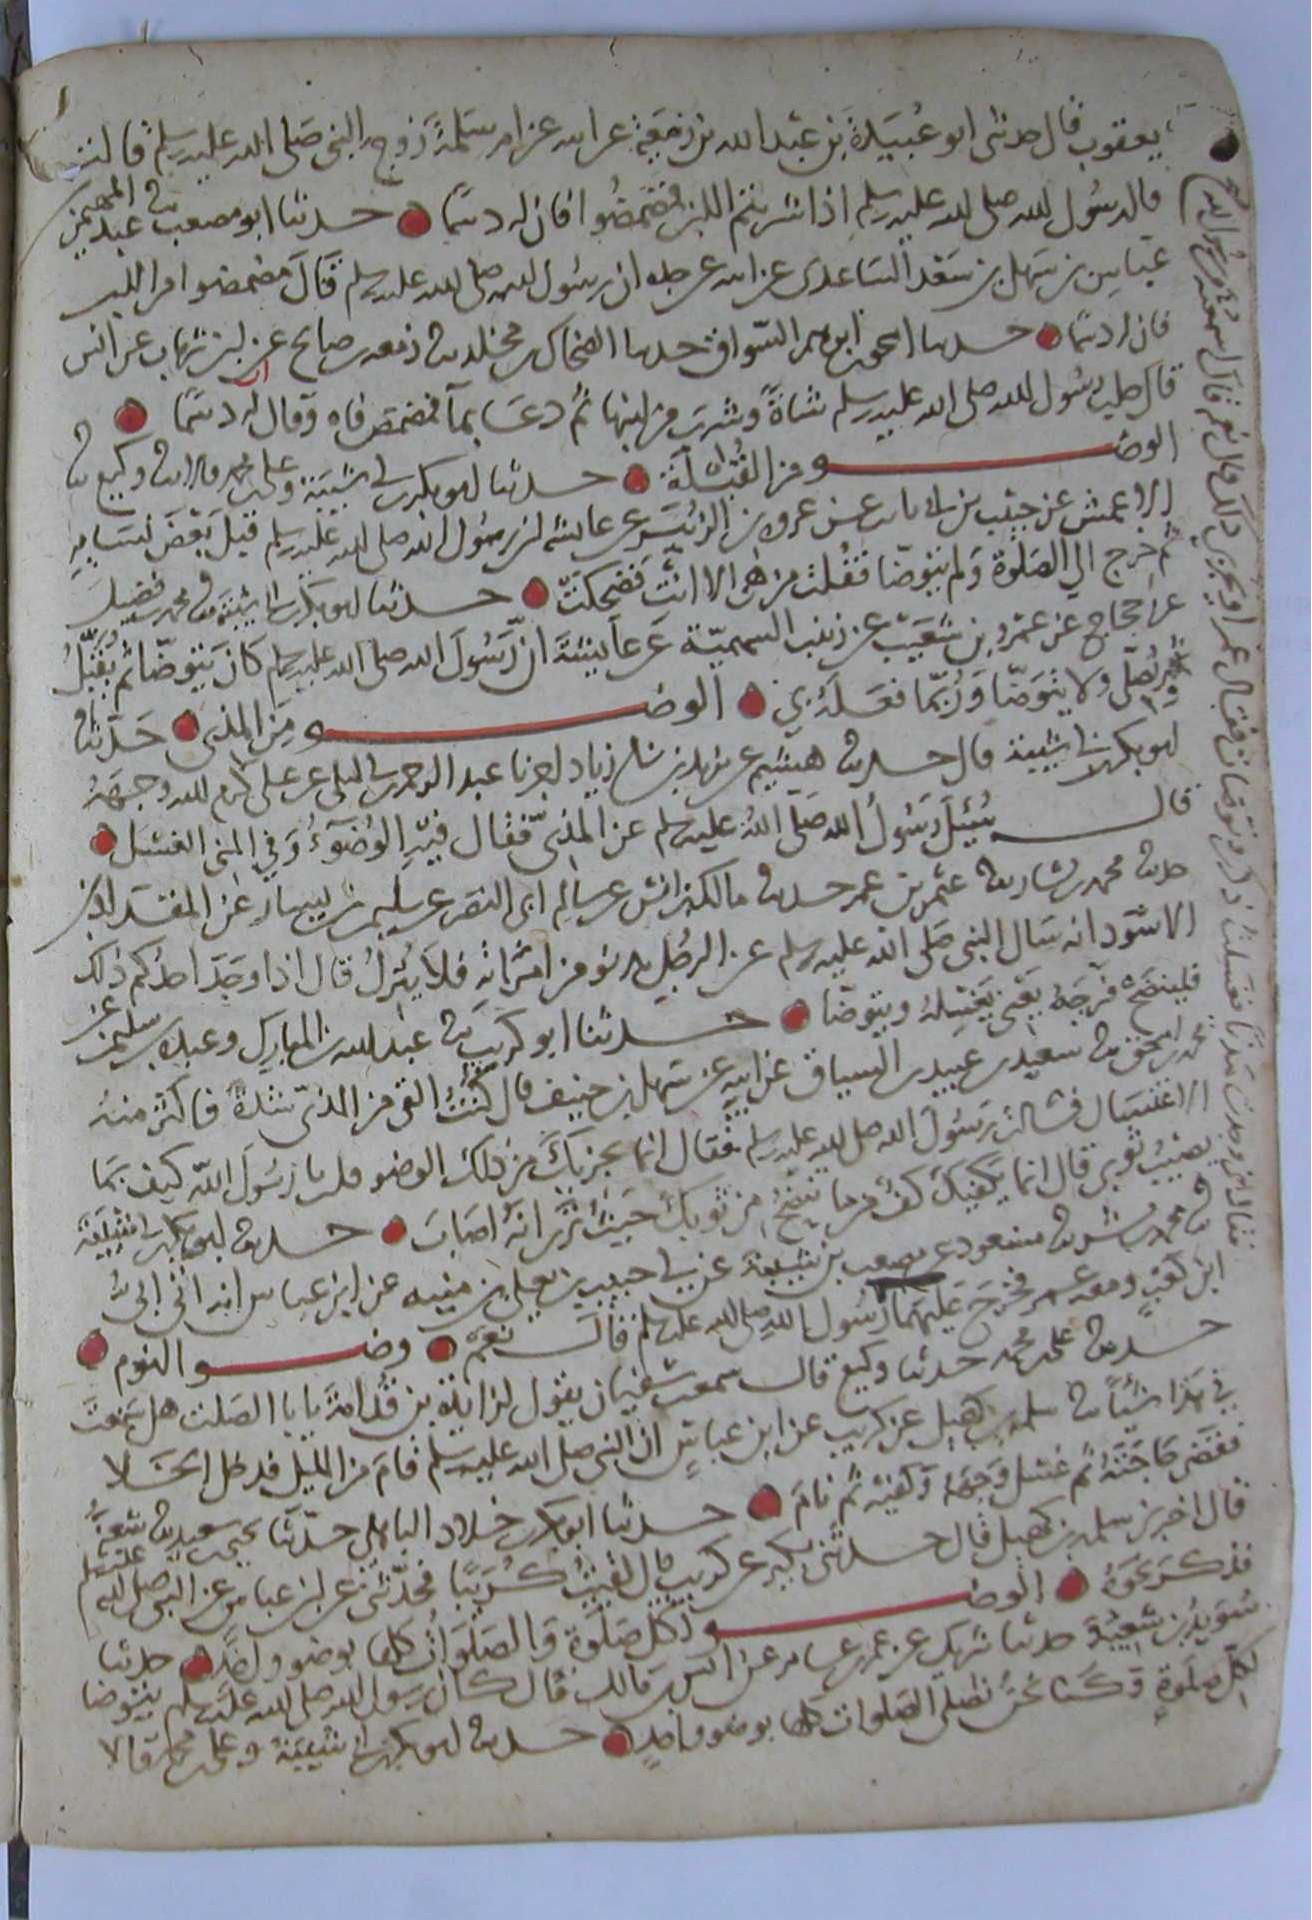 يعقوب قال حدثني ابو عبيدة بن عبد الله بن زمعة عن ابيه عن ام سلمة زوج النبي صلى الله عليه وسلم قالت
قال رسول الله صلى الله عليه وسلم اذا شربتم اللبن فمضمضوا فان له دسما حدثنا ابو مصعب ثنا عبد المهيمن بن
عباس بن سهل بن سعد الساعدي عن ابيه عن جده ان رسول الله صلى الله عليه وسلم قال مضمضوا من اللبن
فان له دسما حدثنا اسحق بن ابراهيم السواق حدثنا الضحاك بن مخلد ثنا زمعة بن صالح عن ابن شهاب عن انس
قال حلب رسول الله صلى الله عليه وسلم شاة وشرب من لبنها ثم دعا بماء فمضمض فاه وقال ان له دسما
الوضوء من القبلة حدثنا ابو بكر بن ابي شيبة وعلي بن محمد قالا ثنا وكيع ثنا
الاعمش عن حبيب بن ابي ثابت عن عروة بن الزبير عن عائشة ان رسول الله صلى الله عليه وسلم قبل بعض نسائه
ثم خرج الى الصلوة ولم يتوضا فقلت من هي الا انت فضحكت حدثنا ابو بكر بن ابي شيبة ثنا محمد بن فضيل
عن حجاج عن عمرو بن شعيب عن زينب السهمية عن عائشة ان رسول الله صلى الله عليه وسلم كان يتوضا ثم يقبل
ويصلي ولا يتوضا وربما فعله بي الوضوء من المذي حدثنا
ابو بكر بن ابي شيبة قال حدثنا هشيم عن يزيد بن ابي زياد عن عبد الرحمن بن ابي ليلى عن علي كرم الله وجهه
قال سئل رسول الله صلى الله عليه وسلم عن المذي فقال فيه الوضوء وفي المني الغسل
حدثنا محمد بن بشار ثنا عثمن بن عمر حدثنا مالك بن انس عن سالم ابي النضر عن سليمن بن يسار عن المقداد بن
الاسود انه سال النبي صلى الله عليه وسلم عن الرجل يدنو من امراته فلا ينزل قال اذا وجد احدكم ذلك
فلينضح فرجه يعني يغسله ويتوضا حدثنا ابو كريب ثنا عبد الله بن المبارك وعبدة بن سليمن عن
محمد بن اسحق ثنا سعيد بن عبيد بن السباق عن ابيه عن سهل بن حنيف قال كنت القى من المذي شدة فاكثر منه
الاغتسال فسالت رسول الله صلى الله عليه وسلم فقال انما يجزيك من ذلك الوضو قلت يا رسول الله كيف بما
يصيب ثوبي قال انما يكفيك كف من ما تنضح من ثوبك حيث ترى انه اصاب حدثنا ابو بكر بن ابي شيبة
ثنا محمد بن بشر ثنا مسعر عن مصعب بن شيبة عن ابي حبيب بن يعلى بن منيه عن ابن عباس انه اتى ابي
ابن كعب ومعه عمر فخرج عليهما رسول الله صلى الله عليه وسلم قال نعم وضوء النوم
حدثنا علي بن محمد حدثنا وكيع قال سمعت سفيان يقول لزائدة بن قدامة يابا الصلت هل سمعت
في هذا شيئا ثنا سلمة بن كهيل عن كريب عن ابن عباس ان النبي صلى الله عليه وسلم قام من الليل فدخل الخلا
فقضى حاجته ثم غسل وجهه وكفيه ثم نام حدثنا ابو بكر بن خلاد الباهلي حدثنا يحيى بن سعيد ثنا شعبة
قال اخبرني سلمة بن كهيل قال حدثني بكير عن كريب قال لقيت كريبا فحدثني عن ابن عباس عن النبي صلى الله عليه وسلم
فذكر نحوه الوضوء لكل صلوة والصلوات كلها بوضو واحد حدثنا
سويد بن سعيد حدثنا شريك عن عمرو بن عامر عن انس بن مالك قال كان رسول الله صلى الله عليه وسلم يتوضا
لكل صلوة وكنا نحن نصلي الصلوات كلها بوضو واحد حدثنا ابو بكر بن ابي شيبة وعلي بن محمد قالا